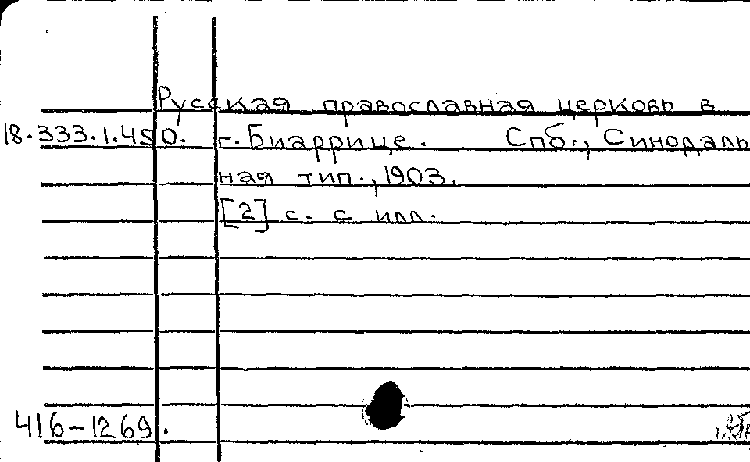 Русская православная церковь в
18.333.1.450. г. Биаррице. Спб., Синодаль
ная тип., 1903.
[2] с. с илл.
416-1269.